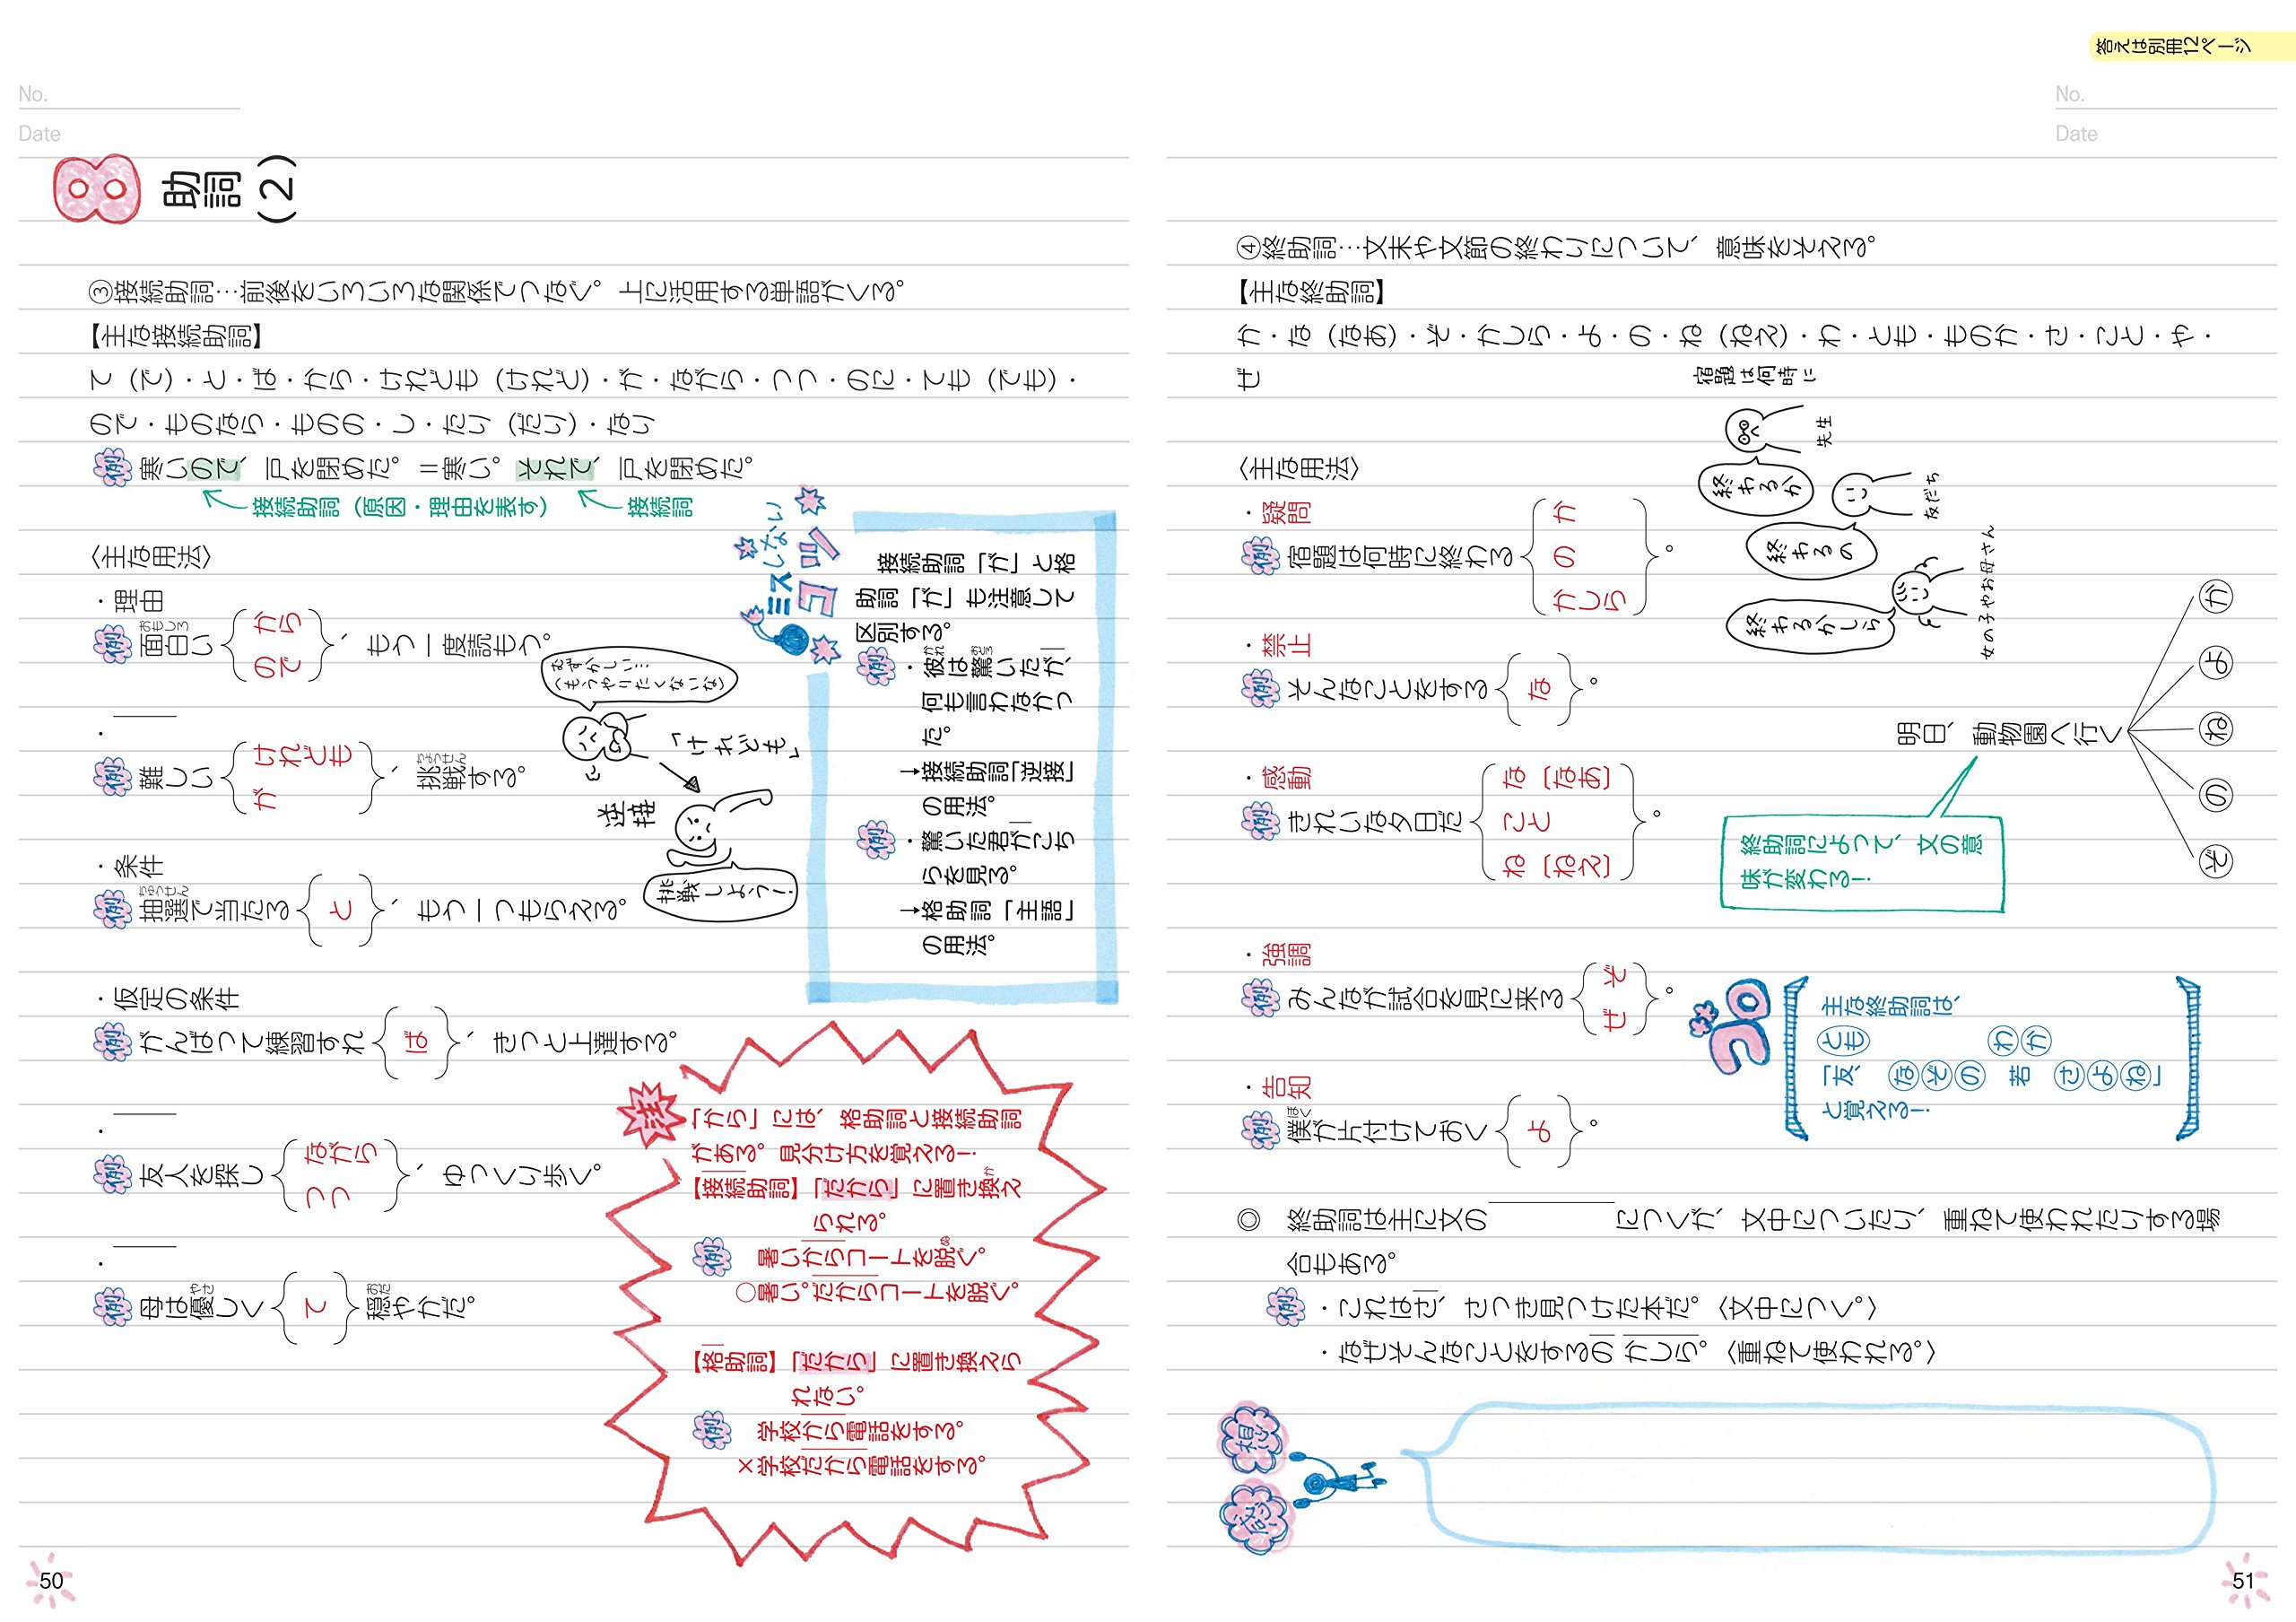 答えは別冊12ページ
No.
Date
8 助詞(2)
③接続助詞…前後をいろいろな関係でつなぐ。上に活用する単語がくる。
【主な接続助詞】
て(で)・と・ば・から・けれども(けれど)・が・ながら・つつ・のに・ても(でも)・
ので・ものなら・ものの・し・たり(だり)・なり
例 寒いので、戸を閉めた。=寒い。それで、戸を閉めた。
接続助詞(原因・理由を表す) 接続詞
〈主な用法〉
・理由
例 面白い{から ので}、もう一度読もう。
おもしろ
・
例 難しい{けれども が}、挑戦する。
ちょうせん
・条件
例 抽選で当たる{と}、もう一つもらえる。
ちゅうせん
・仮定の条件
例 がんばって練習すれ{ば}、きっと上達する。
・
例 友人を探し{ながら つつ}、ゆっくり歩く。
・
例 母は優しく{て}穏やかだ。
やさ おだ
むずかしい…
(もうやりたくないな)
「けれども」
逆接
挑戦しよう!
ミスしないコツ
接続助詞「が」と格
助詞「が」も注意して
区別する。
例・彼は驚いたが、
かれ おどろ
何も言わなかっ
た。
→接続助詞「逆接」
の用法。
例・驚いた君がこち
らを見る。
→格助詞「主語」
の用法。
「から」には、格助詞と接続助詞
がある。見分け方を覚える!
【接続助詞】「だから」に置き換え
か
られる。
例 暑いからコートを脱ぐ。
ぬ
○暑い。だからコートを脱ぐ。
【格助詞】「だから」に置き換えら
れない。
例 学校から電話をする。
×学校だから電話をする。
50
No.
Date
④終助詞…文末や文節の終わりについて、意味をそえる。
【主な終助詞】
か・な(なあ)・ぞ・かしら・よ・の・ね(ねえ)・わ・とも・ものか・さ・こと・や・
ぜ
〈主な用法〉
・疑問
例 宿題は何時に終わる{か の かしら}。
・禁止
例 そんなことをする{な}。
・感動
例 きれいな夕日だ{な〔なあ〕 こと ね〔ねえ〕}。
・強調
例 みんなが試合を見に来る{ぞ ぜ}。
・告知
例 僕が片付けておく{よ}。
ぼく
宿題は何時に
終わるか
先生
終わるの
友だち
終わるかしら
女の子やお母さん
明日、動物園へ行く
か
よ
ね
の
ぞ
終助詞によって、文の意
味が変わる!
コツ
主な終助詞は、
とも わか
「友、なぞの 若 さよね」
と覚える!
◎ 終助詞は主に文の につくが、文中についたり、重ねて使われたりする場
合もある。
例・これはさ、さっき見つけた本だ。〈文中につく。〉
・なぜそんなことをするのかしら。〈重ねて使われる。〉
感想
51